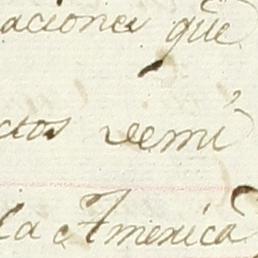 aciones que
ctos remi
la America